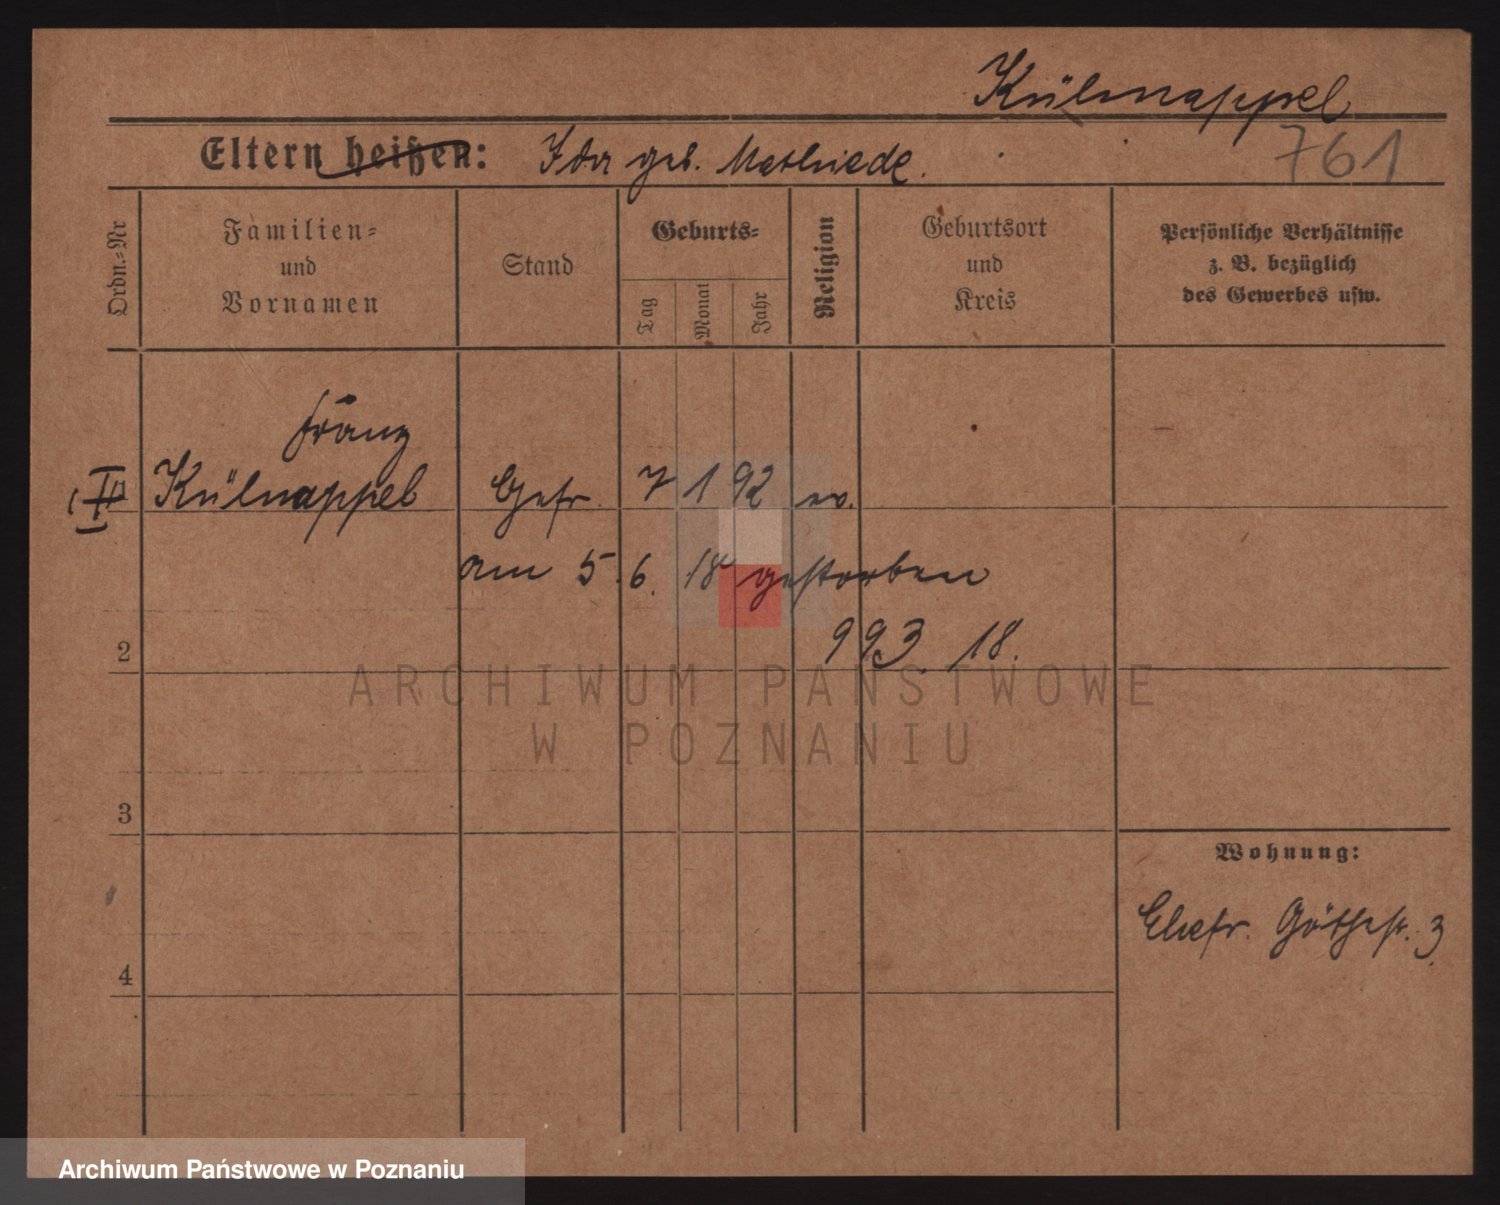 Külnappel
Eltern heißen: Ida geb. Mathiede.
761
Ordn.-Nr
Familien-
und
Vornamen
Stand
Geburts-
Tag
Monat
Jahr
Religion
Geburtsort
und
Kreis
Persönliche Verhältnisse
z. B. bezüglich
des Gewerbes usw.
Franz
Külnappel Gefr. 7 1 92 ev.
am 5. 6. 18 gestorben
993 18.
2
3
4
Wohnung:
Ehefr. Götestr. 3.
ARCHIWUM PAŃSTWOWE
W POZNANIU
Archiwum Państwowe w Poznaniu